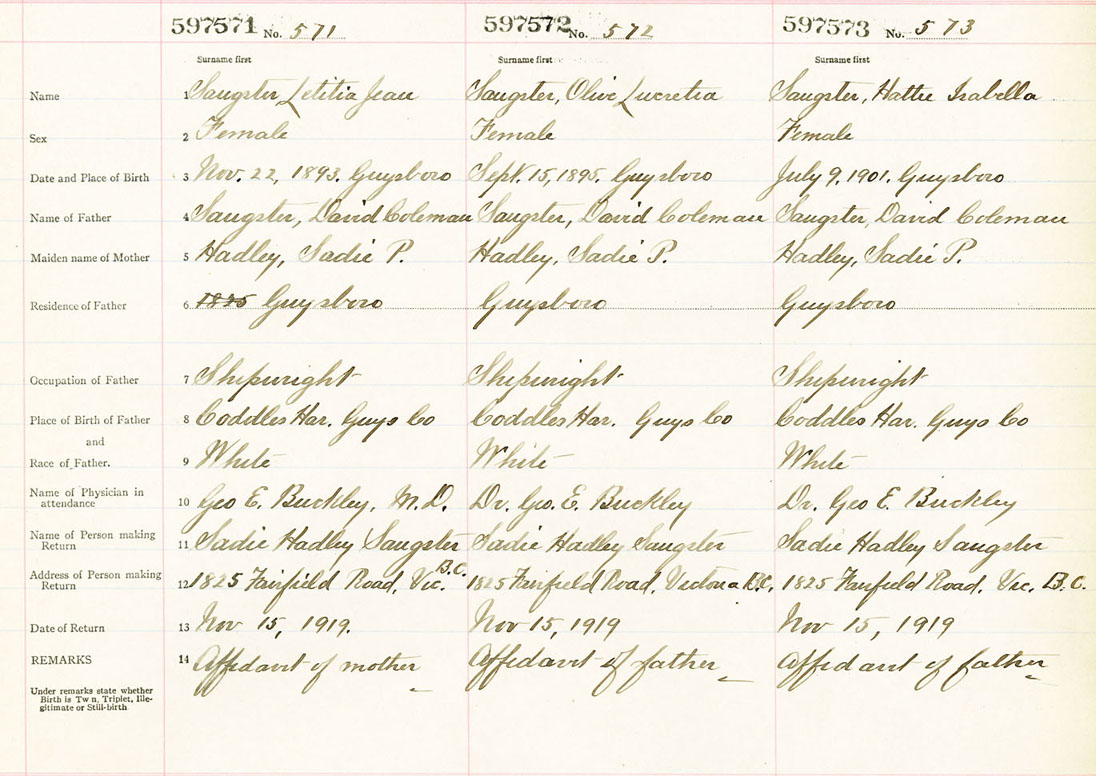 597571 No. 571 597572 No. 572 597573 No. 573
Surname first Surname first Surname first
Name 1 Sangster Letitia Jean Sangster, Olive Lucretia Sangster, Hattie Isabella
Sex 2 Female Female Female
Date and Place of Birth 3 Nov. 22, 1893. Guysboro Sept. 15, 1895. Guysboro July 9, 1901. Guysboro
Name of Father 4 Sangster, David Coleman Sangster, David Coleman Sangster, David Coleman
Maiden name of Mother 5 Hadley, Sadie P. Hadley, Sadie P. Hadley, Sadie P.
Residence of Father 6 Guysboro Guysboro Guysboro
Occupation of Father 7 Shipwright Shipwright Shipwright
Place of Birth of Father 8 Coddles Har. Guys Co Coddles Har. Guys Co Coddles Har. Guys Co
and
Race of Father. 9 White White White
Name of Physician in
attendance 10 Geo E. Buckley, M.D. Dr. Geo. E. Buckley Dr. Geo E. Buckley
Name of Person making
Return 11 Sadie Hadley Sangster Sadie Hadley Sangster Sadie Hadley Sangster
Address of Person making
Return 12 1825 Fairfield Road, Vic. B.C. 1825 Fairfield Road, Victoria B.C. 1825 Fairfield Road, Vic. B.C.
Date of Return 13 Nov 15, 1919. Nov 15, 1919 Nov 15, 1919
REMARKS 14 Affidavit of mother Affidavit of father Affidavit of father
Under remarks state whether
Birth is Twin, Triplet, Ille-
gitimate or Still-birth